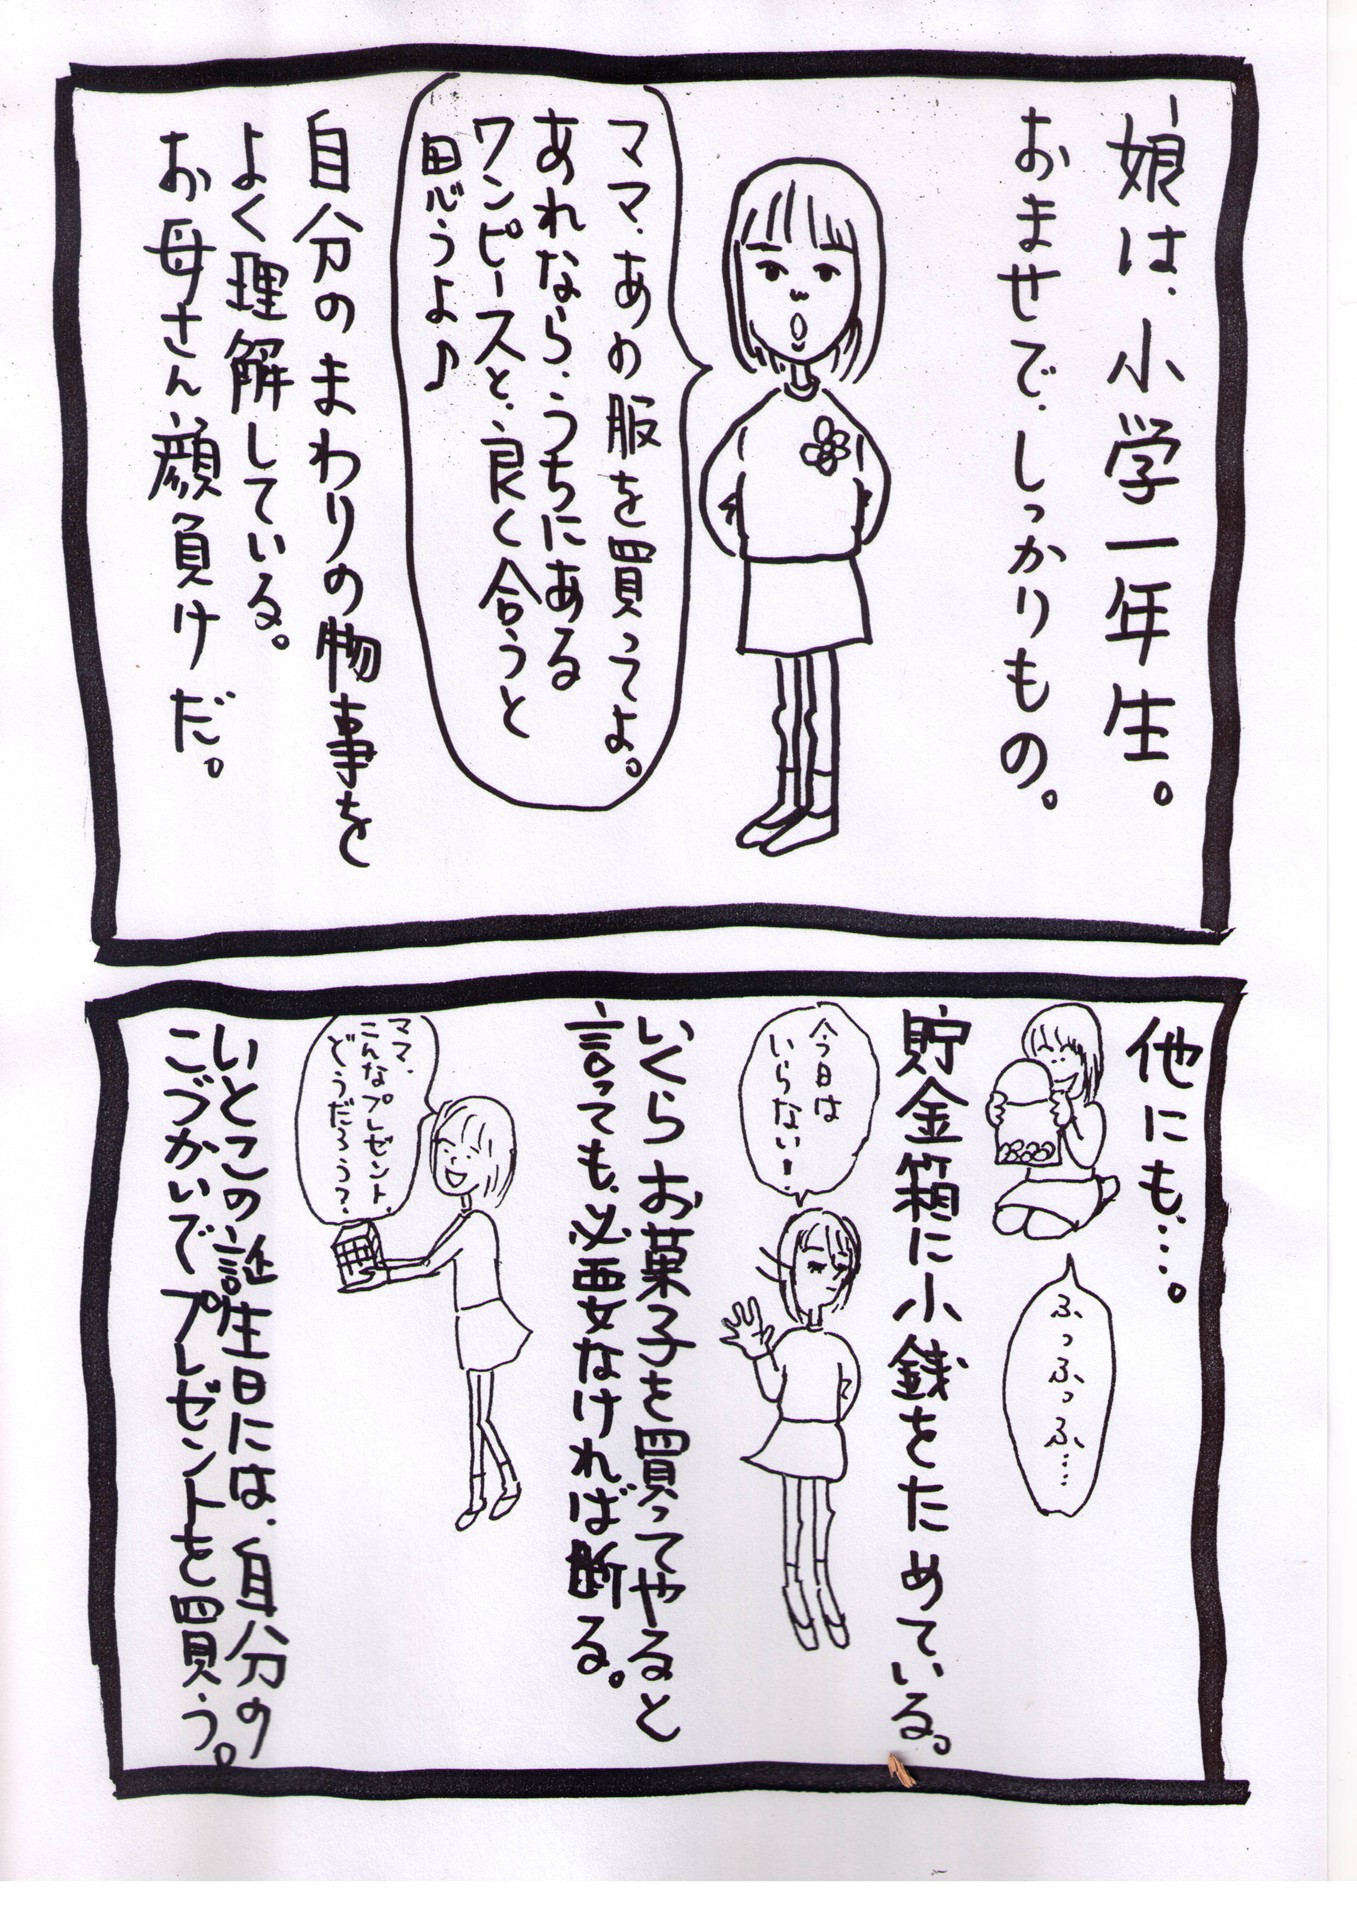 娘は、小学一年生。
おませで、しっかりもの。
ママ、あの服を買ってよ。
あれなら、うちにある
ワンピースと、良く合うと
思うよ♪
自分のまわりの物事を
よく理解している。
お母さん顔負けだ。
他にも…。
ふっふっふ…
貯金箱に小銭をためている。
今日は
いらない！
いくらお菓子を買ってやると
言っても、必要なければ断る。
ママ、
こんなプレゼント、
どうだろう？
いとこの誕生日には、自分の
こづかいでプレゼントを買う。